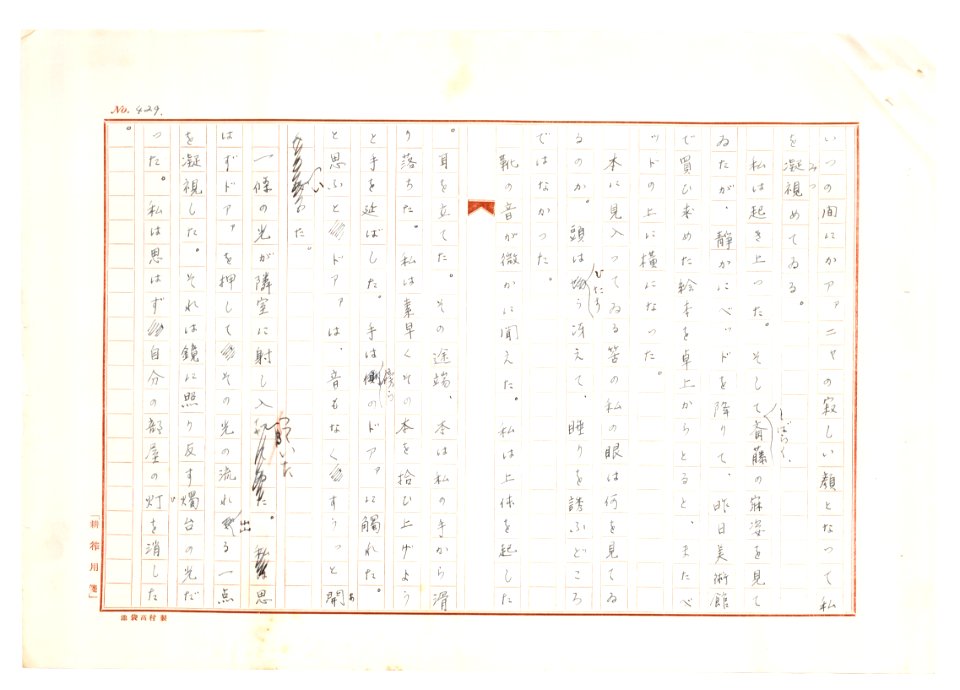 No. 429.
いつの間にかアァニャの寂しい顔となつて私
を凝視めてゐる。
みつ
私は起き上つた。そして斎藤の寐姿を見て
しばらく、
ゐたが、静かにベッドを降りて、昨日美術館
で買ひ求めた絵本を卓上からとると、またベ
ッドの上に横になつた。
本に見入つてゐる筈の私の眼は何を見てゐ
るのか。頭は冴えて、睡りを誘ふどころ
ではなかつた。
靴の音が微かに聞えた。私は上体を起した
。耳を立てた。その途端、本は私の手から滑
り落ちた。私は素早くその本を拾ひ上げよう
と手を延ばした。手は傍らのドアァに觸れた。
と思ふとドアァは、音もなくすうつと開
あ
いた。
一條の光が隣室に射し入た。思
はずドアァを押してその光の流れ出る一点
を凝視した。それは鏡に照り反す燭台の光だ
つた。私は思はず自分の部屋の灯を消した
ひ
。
「耕作用箋」